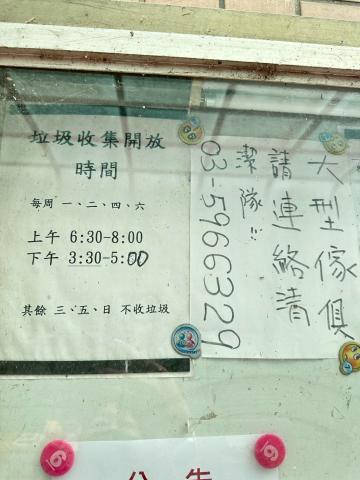 垃圾收集開放
時間
每周 一、二、四、六
上午 6:30-8:00
下午 3:30-5:00
其餘 三、五、日 不收垃圾
大型傢俱
請連絡清
潔隊!!
03-5966329
公告